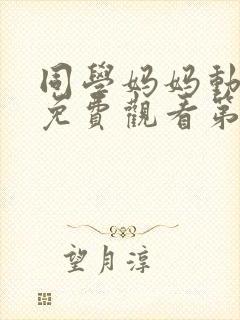 同學妈妈動
免費觀看第
望月淳